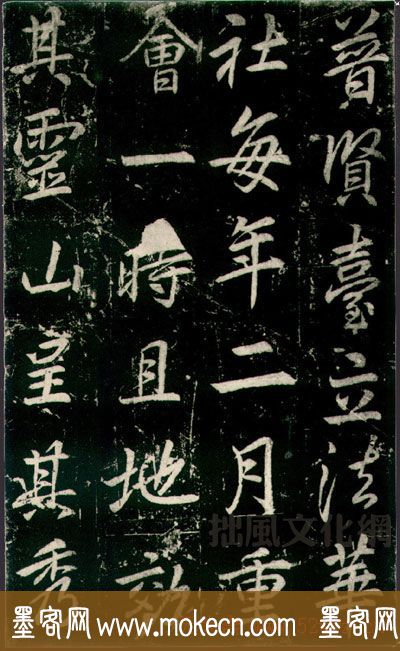 普賢臺立法華
社每年二月重
會一時且地效
其靈山呈其秀
拙風文化網
墨客网 www.mokecn.com 墨客网